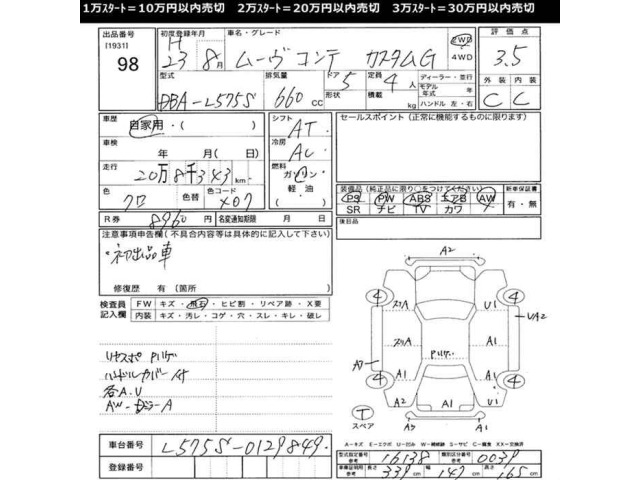 1万ｽﾀｰﾄ＝10万円以内売切　2万ｽﾀｰﾄ＝20万円以内売切　3万ｽﾀｰﾄ＝30万円以内売切
出品番号
[1931]
98
初度登録年月
H
23 8月
車名・グレード
ムーヴ コンテ カスタムG
2WD
4WD
評価点
3.5
型式
DBA-L575S
排気量
660 CC
ドア 5
形状
定員 4 人
積載 kg
ディーラー・並行
モデル年式 年
ハンドル 左・右
外装 内装
C C
車歴
自家用・( )
シフト
AT
セールスポイント（正常に機能するものに限り）
車検
年 月 日
冷房
AC
走行
20万8千343 km
燃料
ガソリン
軽油
( )
色
クロ
色替
色コード
X07
装備品（純正品に限り○をつけてください）
PS PW ABS エアB AW
SR ナビ TV カワ
新車保証書
有・無
R券
8960 円
名変通知期限 月 日
後日品
注意事項申告欄（不具合内容等は具体的に記入して下さい）
・初出品車
修復歴 有（箇所 ）
検査員
記入欄
FW キズ・飛石・ヒビ割・リペア跡・X要
内装 キズ・汚レ・コゲ・穴・スレ・キレ・破レ
A2
4 スリA U1 4
UA2
スリA A1 A1
Pハゲ
4 A1 U1 4
A2 A1
T
スペア
A3 A1
リヤスポ Pハゲ
ハンドルカバー付
各A.U
車台番号
L575S-0129849
登録番号
A-キズ E-エクボ U-凹ミ W-補修跡 S-サビ C-腐食 XX-交換済
型式指定番号
参考
16138
類別区分番号
参考
0039
車庫証明用
参考
長さ
339 cm
幅
147 cm
高さ
165 cm